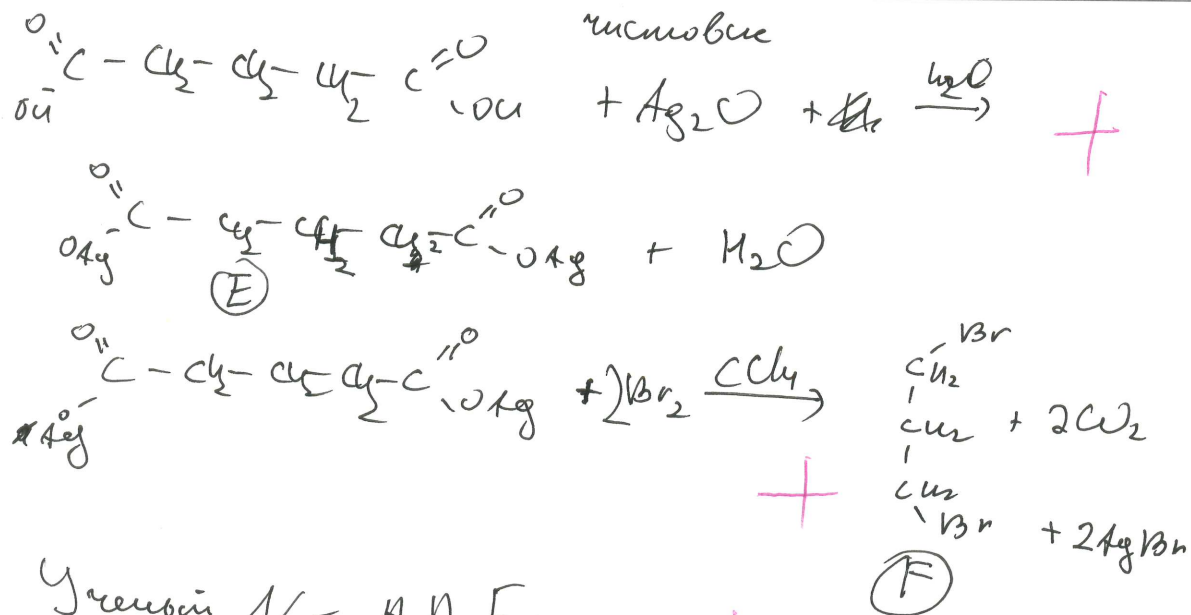 чистовик
O=C(OH) – CH2 – CH2 – CH2 – C(=O)OH + Ag2O + H2O →
O=C(OAg) – CH2 – CH2 – CH2 – C(=O)OAg + H2O
E
O=C(OAg) – CH2 – CH2 – CH2 – C(=O)OAg + 2Br2 CCl4 → CH2Br – CH2 – CH2Br + 2CO2 + 2AgBr
F
Ученый